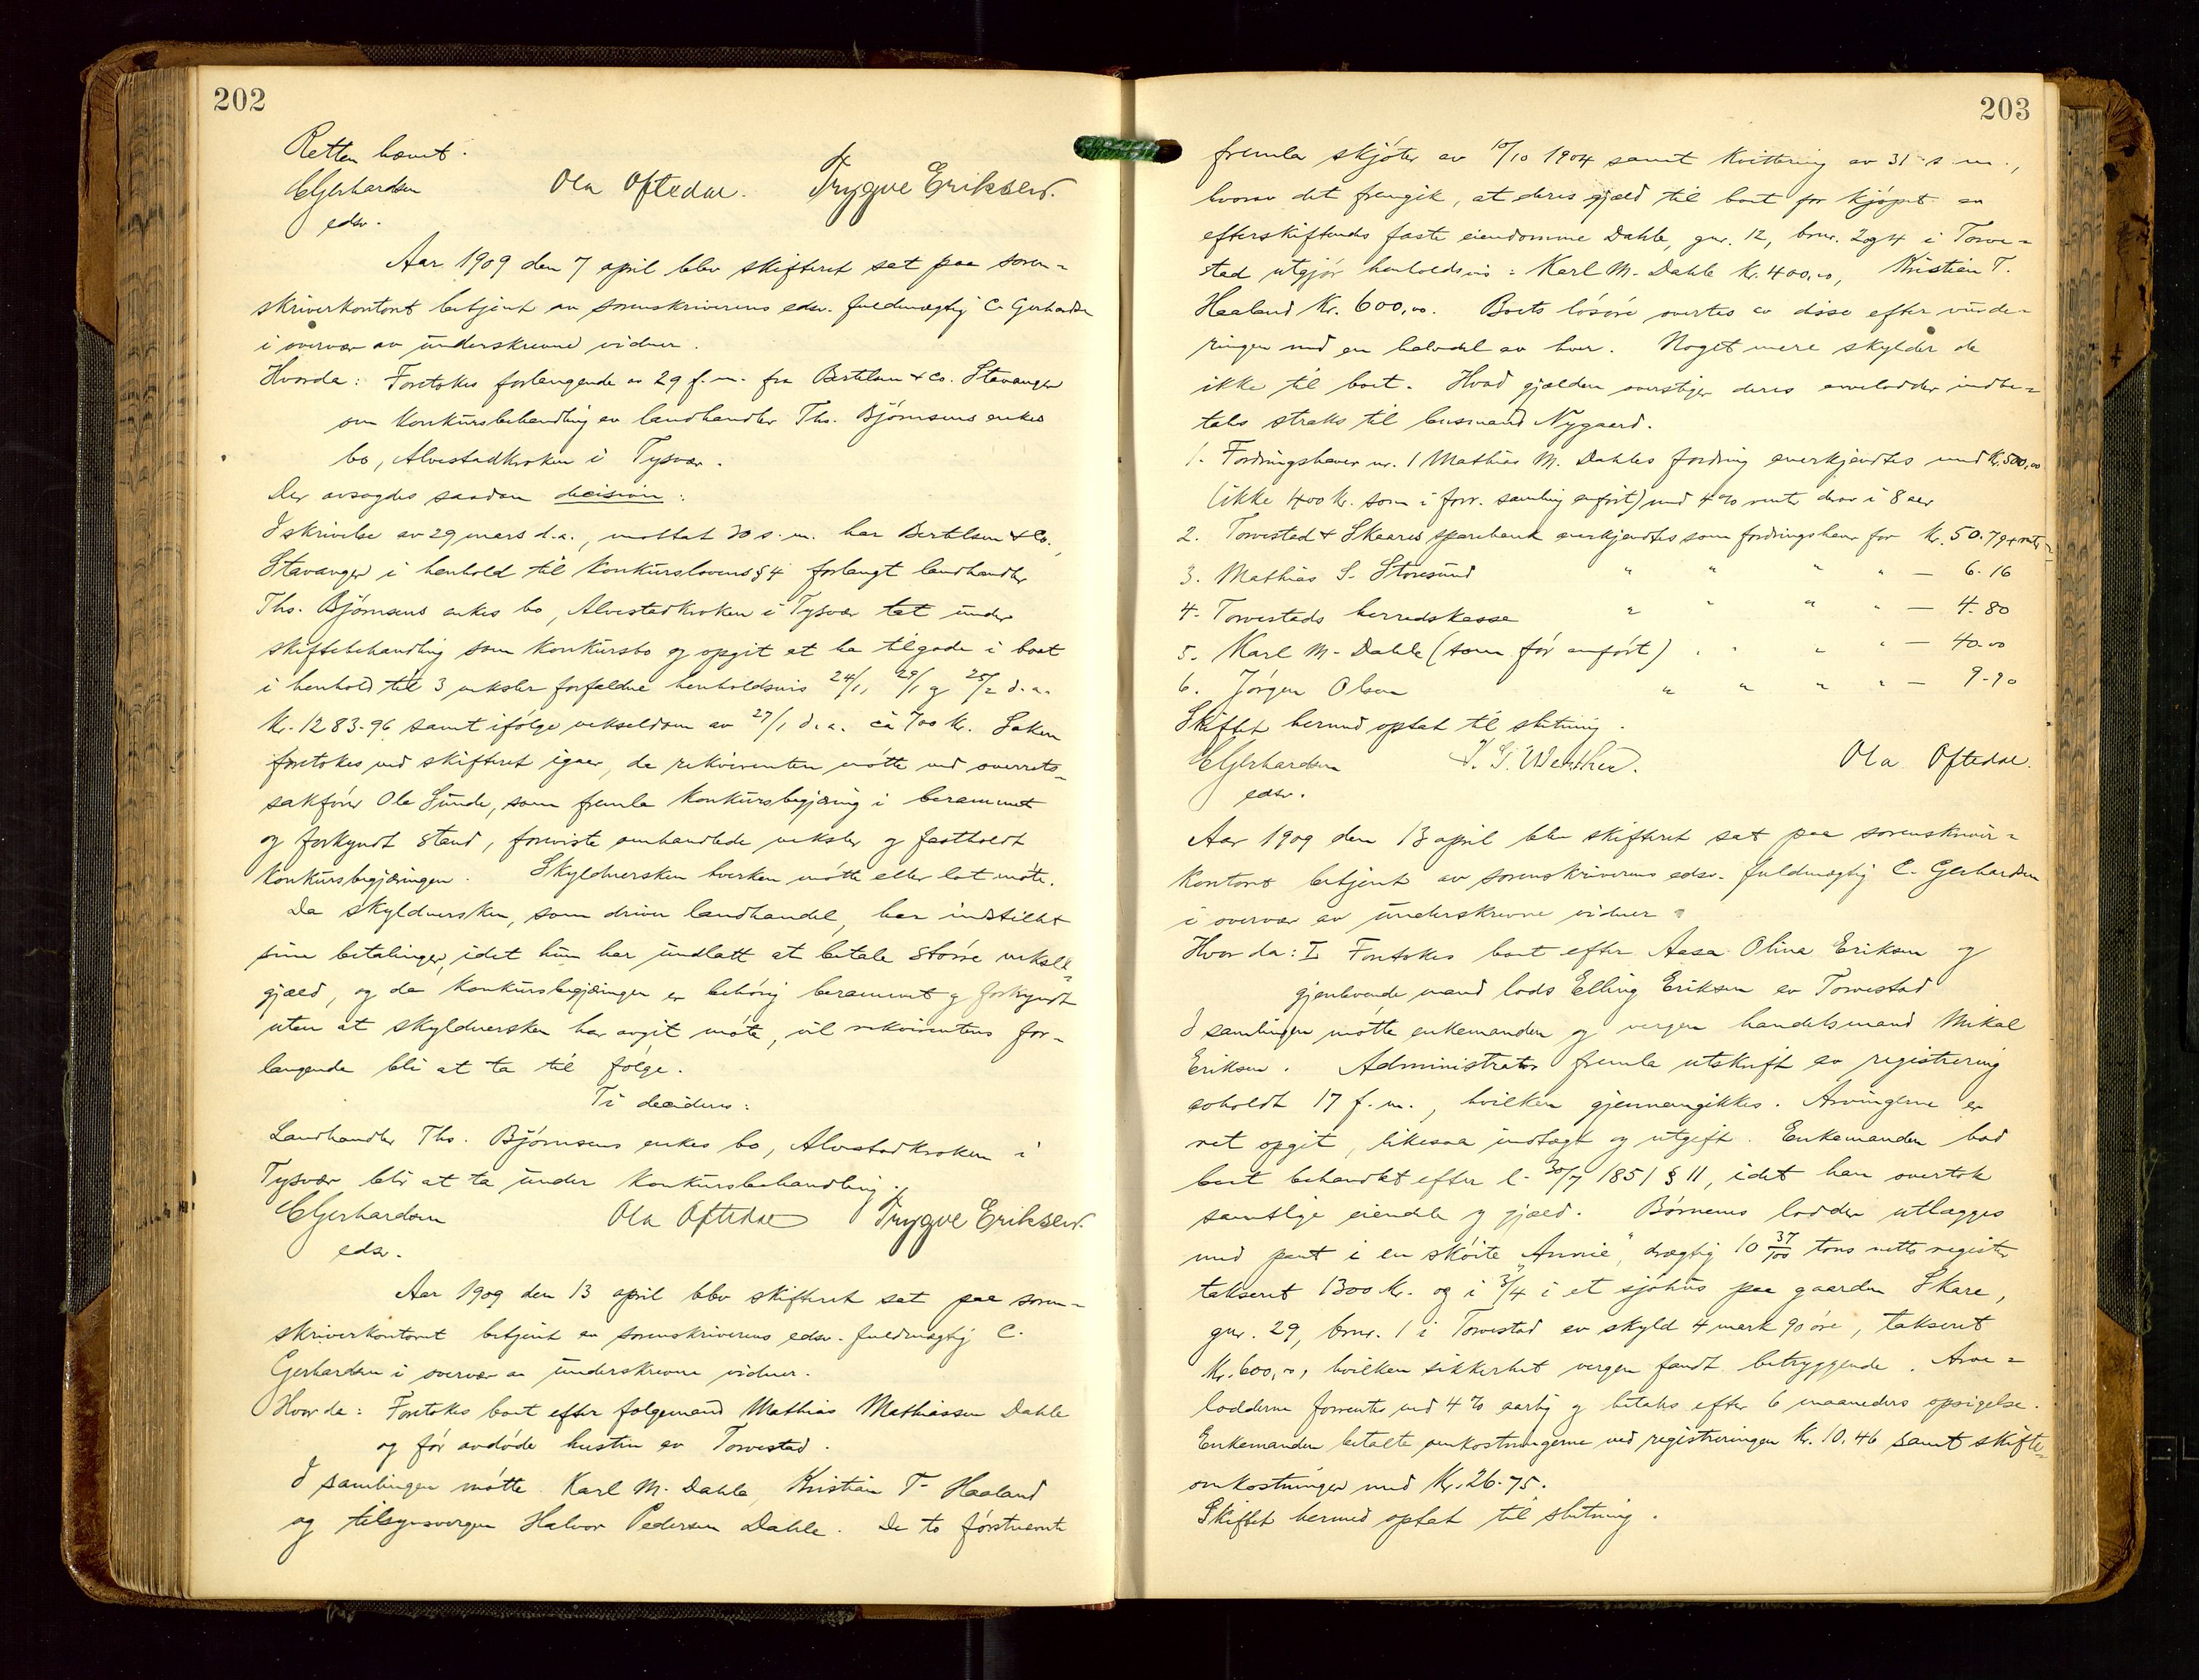 202
Retten hævet.
CGerhardsen Ola Oftedal. Trygve Eriksen.
edsv.
Aar 1909 den 7 april blev skifteret sat paa soren-
skriverkontoret betjent av sorenskriverens edsv. fuldmægtig C. Gerhardsen
i overvær av underskrevne vidner.
Hvorda: Foretokes forlangende av 29 f.m. fra Bertelsen & Co. Stavanger
om konkursbehandling av landhandler Ths. Bjørnsens enkes
bo, Alvestadkroken i Tysvær.
Der avsagdes saadan decision:
I skrivelse av 29 mars d.a., mottat 30 s.m. har Bertelsen & Co.,
Stavanger i henhold til konkurslovens § 4 forlangt landhandler
Ths. Bjørnsens enkes bo, Alvestadkroken i Tysvær tat under
skiftebehandling som konkursbo og opgit at ha tilgode i boet
i henhold til 3 veksler forfaldne henholdsvis 24/1, 29/1 og 25/2 d.a.
kr. 1283.96 samt ifølge vekseldom av 27/1 d.a. ca 700 kr. Saken
foretokes ved skifteret igaar, da rekvirenten møtte ved overrets-
sakfører Ole Sunde, som fremla konkursbegjæring i berammet
og forkyndt stand, foreviste omhandlede veksler og fastholdt
konkursbegjæringen. Skyldnersken hverken møtte eller lot møte.
Da skyldnersken, som driver landhandel, har indstillet
sine betalinger, idet hun har undlatt at betale større veksel-
gjæld, og da konkursbegjæringen er behørig berammet og forkyndt
uten at skyldnersken har avgit møte, vil rekvirentens for-
langende bli at ta til følge.
Ti decideres:
Landhandler Ths. Bjørnsens enkes bo, Alvestadkroken i
Tysvær blir at ta under konkursbehandling.
CGerhardsen Ola Oftedal Trygve Eriksen.
edsv.
Aar 1909 den 13 april blev skifteret sat paa soren-
skriverkontoret betjent av sorenskriverens edsv. fuldmægtig C.
Gerhardsen i overvær av underskrevne vidner.
Hvorda: Foretokes boet efter følgemand Mathias Mathiassen Dahle
og før avdøde hustru av Torvestad.
I samlingen møtte Karl M. Dahle, Kristian T. Haaland
og tilsynsvergen Halvor Pedersen Dahle. De to førstnevnte
203
fremla skjøter av 10/10 1904 samt kvittering av 31 s.m.,
hvorav det fremgik, at deres gjæld til boet for kjøpet av
efterskiftends faste eiendomme Dahle, gnr. 12, brnr. 2 og 4 i Torve-
stad utgjør henholdsvis: Karl M. Dahle kr. 400,00, Kristian T.
Haaland kr. 600,00. Boets løsøre overtes av disse efter vurde-
ringen med en halvdel av hver. Noget mere skylder de
ikke til boet. Hvad gjælden overstiger deres arvelodder indbe-
tales straks til lensmand Nygaard.
1. Fordringshaver nr. 1 Mathias M. Dahles fordring anerkjendtes med kr. 500,00
(ikke 400 kr. som i forr. samling anført) med 4% rente derav i 8 aar
2. Torvestad & Skaares sparebank anerkjendtes som fordringshaver for kr. 50.79 + rente
3. Mathias S. Storesund " " " " — 6.16
4. Torvestads herredskasse " " " " — 4.80
5. Karl M. Dahle (som før anført) " " " " — 40.00
6. Jørgen Olsen " " " " — 9.90
Skiftet hermed optat til slutning.
CGerhardsen Ola Oftedal.
edsv.
Aar 1909 den 13 april blev skifteret sat paa sorenskriver-
kontoret betjent av sorenskriverens edsv. fuldmægtig C. Gerhardsen
i overvær av underskrevne vidner.
Hvorda: I Foretokes boet efter Aasa Olina Eriksen og
gjenlevende mand lods Elling Eriksen av Torvestad
I samlingen møtte enkemanden og vergen handelsmand Mikal
Eriksen. Administrator fremla utskrift av registrering
avholdt 17 f.m., hvilken gjennemgikkes. Arvingerne er
ret opgit, likesaa indtægt og utgift. Enkemanden bad
boet behandlet efter l. 30/7 1851 § 11, idet han overtok
samtlige eiendele og gjæld. Børnenes lodder utlægges
med pant i en skøite "Annie", drægtig 10 37/100 tons netto register
takseret 1300 kr. og i 3/4 i et sjøhus paa gaarden Skare,
gnr. 29, brnr. 1 i Torvestad av skyld 4 mark 90 øre, takseret
kr. 600,00, hvilken sikkerhet vergen fandt betryggende. Arve-
lodderne forrentes med 4% aarlig og betales efter 6 maaneders opsigelse.
Enkemanden betalte omkostningerne ved registreringen kr. 10.46 samt skifte-
omkostninger med kr. 26.75.
Skiftet hermed optat til slutning.